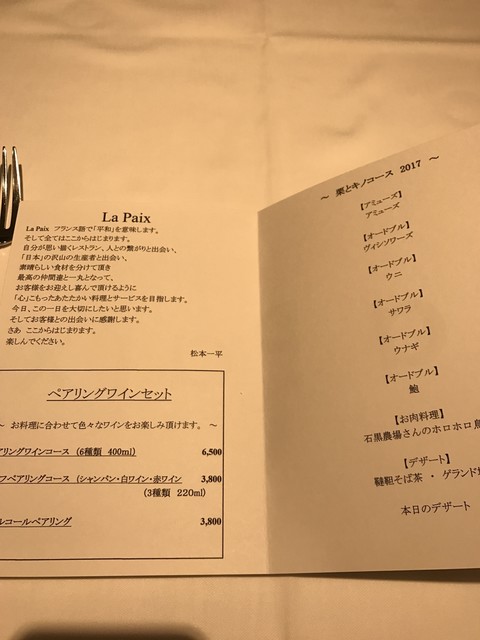 La Paix
La Paix フランス語で「平和」を意味します。
そして全てはここからはじまります。
自分が思い描くレストラン、人との繋がりと出会い、
「日本」の沢山の生産者と出会い、
素晴らしい食材を分けて頂き
最高の仲間達と一丸となって、
お客様をお迎えし喜んで頂けるように
「心」こもったあたたかい料理とサービスを目指します。
今日、この一日を大切にしたいと思います。
そしてお客様との出会いに感謝します。
さあ ここからはじまります。
楽しんでください。
松本一平
ペアリングワインセット
～ お料理に合わせて色々なワインをお楽しみ頂けます。 ～
アリングワインコース (6種類 400ml) 6,500
フペアリングコース (シャンパン・白ワイン・赤ワイン 3,800
(3種類 220ml)
ルコールペアリング 3,800
～ 栗とキノコース 2017 ～
【アミューズ】
アミューズ
【オードブル】
ヴィシソワーズ
【オードブル】
ウニ
【オードブル】
サワラ
【オードブル】
ウナギ
【オードブル】
鮑
【お肉料理】
石黒農場さんのホロホロ鳥
【デザート】
韃靼そば茶 ・ ゲランド
本日のデザート